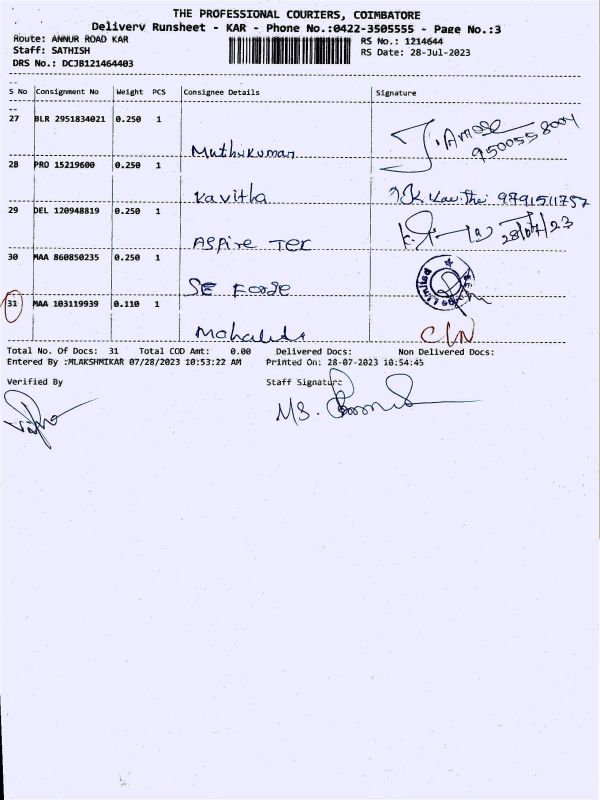 THE PROFESSIONAL COURIERS, COIMBATORE
Delivery Runsheet - KAR - Phone No.:0422-3505555 - Page No.:3
Route: ANNUR ROAD KAR RS No.: 1214644
Staff: SATHISH RS Date: 28-Jul-2023
DRS No.: DCJB121464403
S No Consignment No Weight PCS Consignee Details Signature
27 BLR 2951834021 0.250 1
Muthukumar J. Amose 9500558004
28 PRO 15219600 0.250 1
Kavitha 9791511757
29 DEL 120948819 0.250 1
Aspire Tek 28/07/23
30 MAA 860850235 0.250 1
SE Forge Limited
31 MAA 103119939 0.110 1
C/N
Total No. Of Docs: 31 Total COD Amt: 0.00 Delivered Docs: Non Delivered Docs:
Entered By :MLAKSHMIKAR 07/28/2023 10:53:22 AM Printed On: 28-07-2023 10:54:45
Verified By Staff Signature
MS.